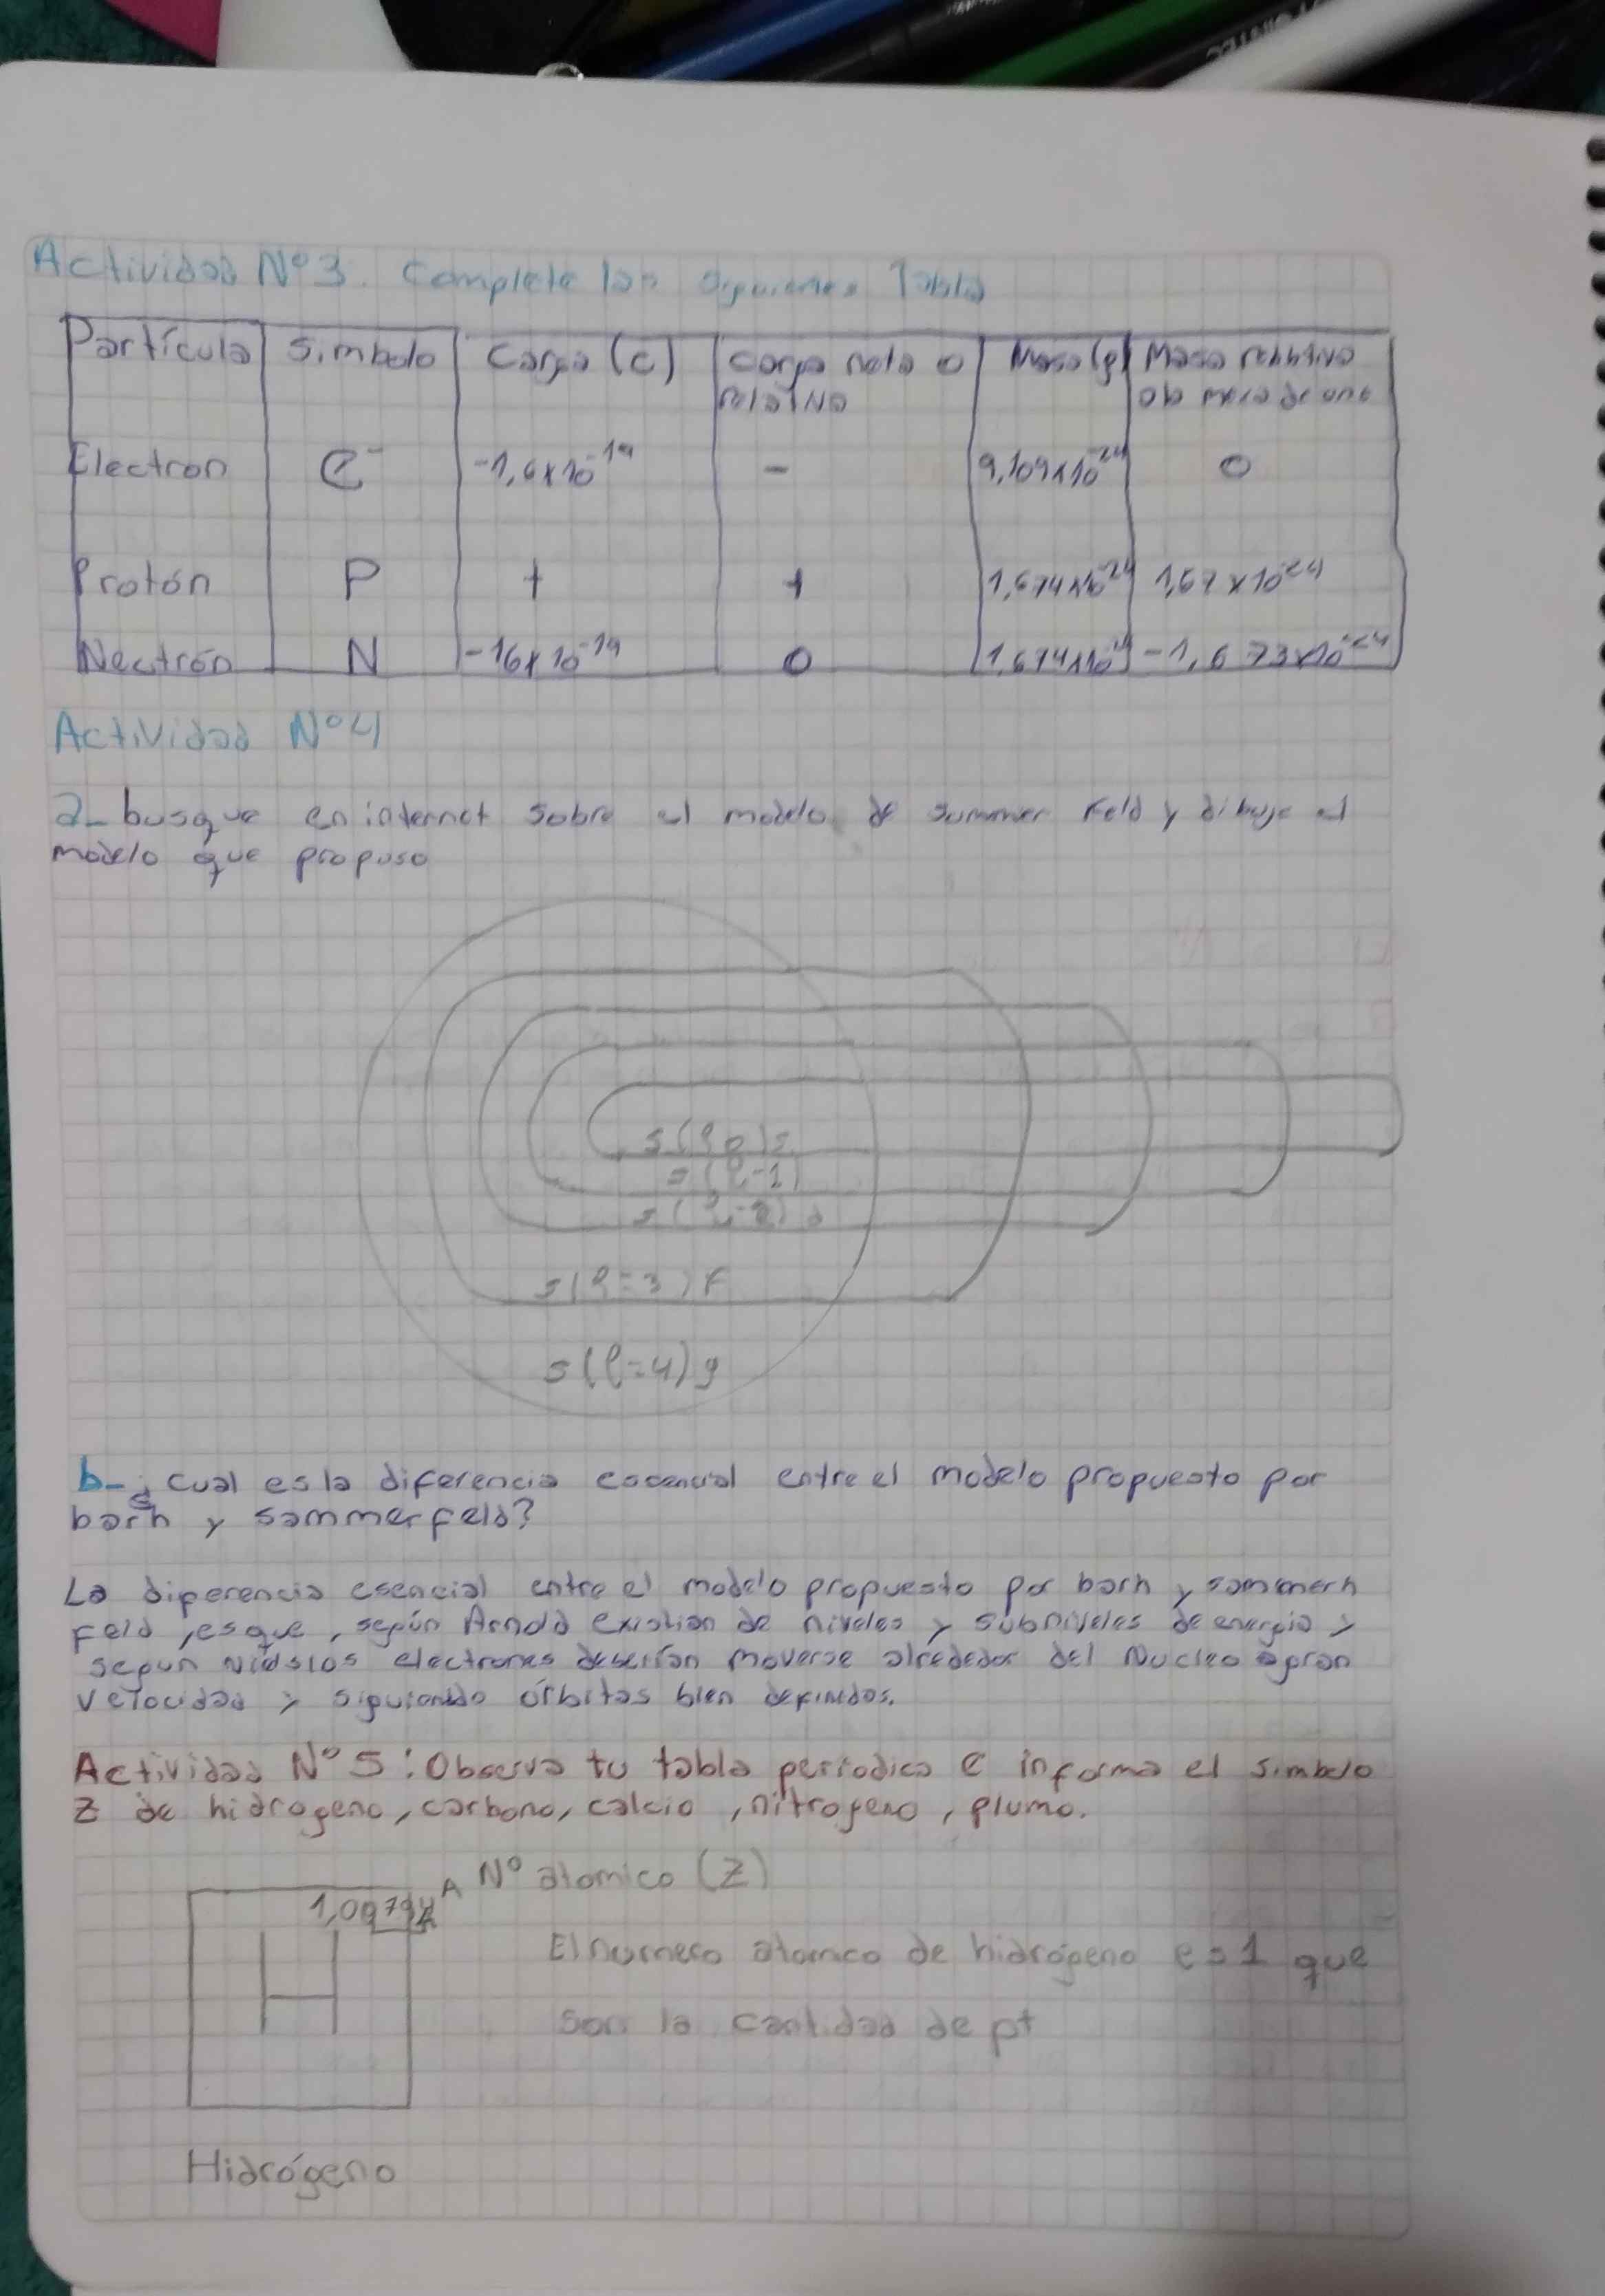 Actividad Nº3. Complete las siguientes Tabla
Partícula Simbolo Carga (C) Carga neta o relativa Masa (g) Masa relativa
Electron e⁻ -1,6x10⁻¹⁹ - 9,109x10⁻²⁴ 0
Protón P + + 1,674x10⁻²⁴ 1,67x10⁻²⁴
Nectrón N -16x10⁻¹⁹ 0 1,674x10 -1,673x10⁻²⁴
Actividad Nº4
a- busque en internet sobre el modelo de summer feld y dibuje el
modelo que propuso
s(l=3)f
s(l=4)g
b- ¿cual es la diferencia escencial entre el modelo propuesto por
borh y sommerfeld?
La diferencia esencial entre el modelo propuesto por borh y sommerh
feld, es que, según Arnold existian de niveles y subniveles de energia y
segun los electrones deberían moverse alrededor del Nucleo a gran
velocidad y siguiendo órbitas bien definidas.
Actividad Nº5: Observa tu tabla periodica e informa el simbolo
Z de hidrogeno, carbono, calcio, nitrogeno, plumo.
A Nº atomico (Z)
1,00794
H
El numero atomico de hidrógeno es 1 que
son la cantidad de p+
Hidrógeno